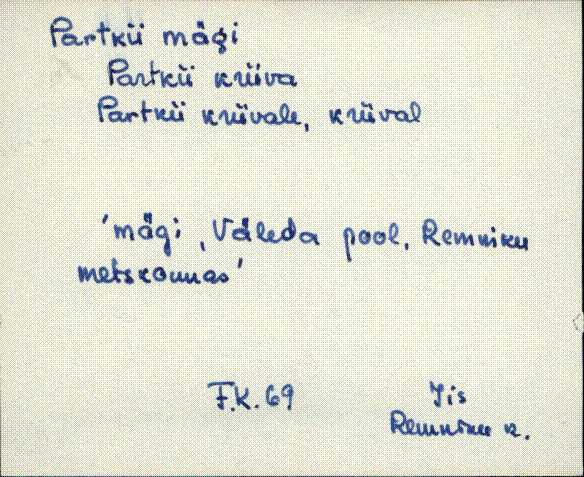 Partkü mägi
Partkü krüva
Partkü krüvale, krüval
'mägi, Väleda pool, Remniku
metskonnas'
F.K. 69
Iis
Remniku k.